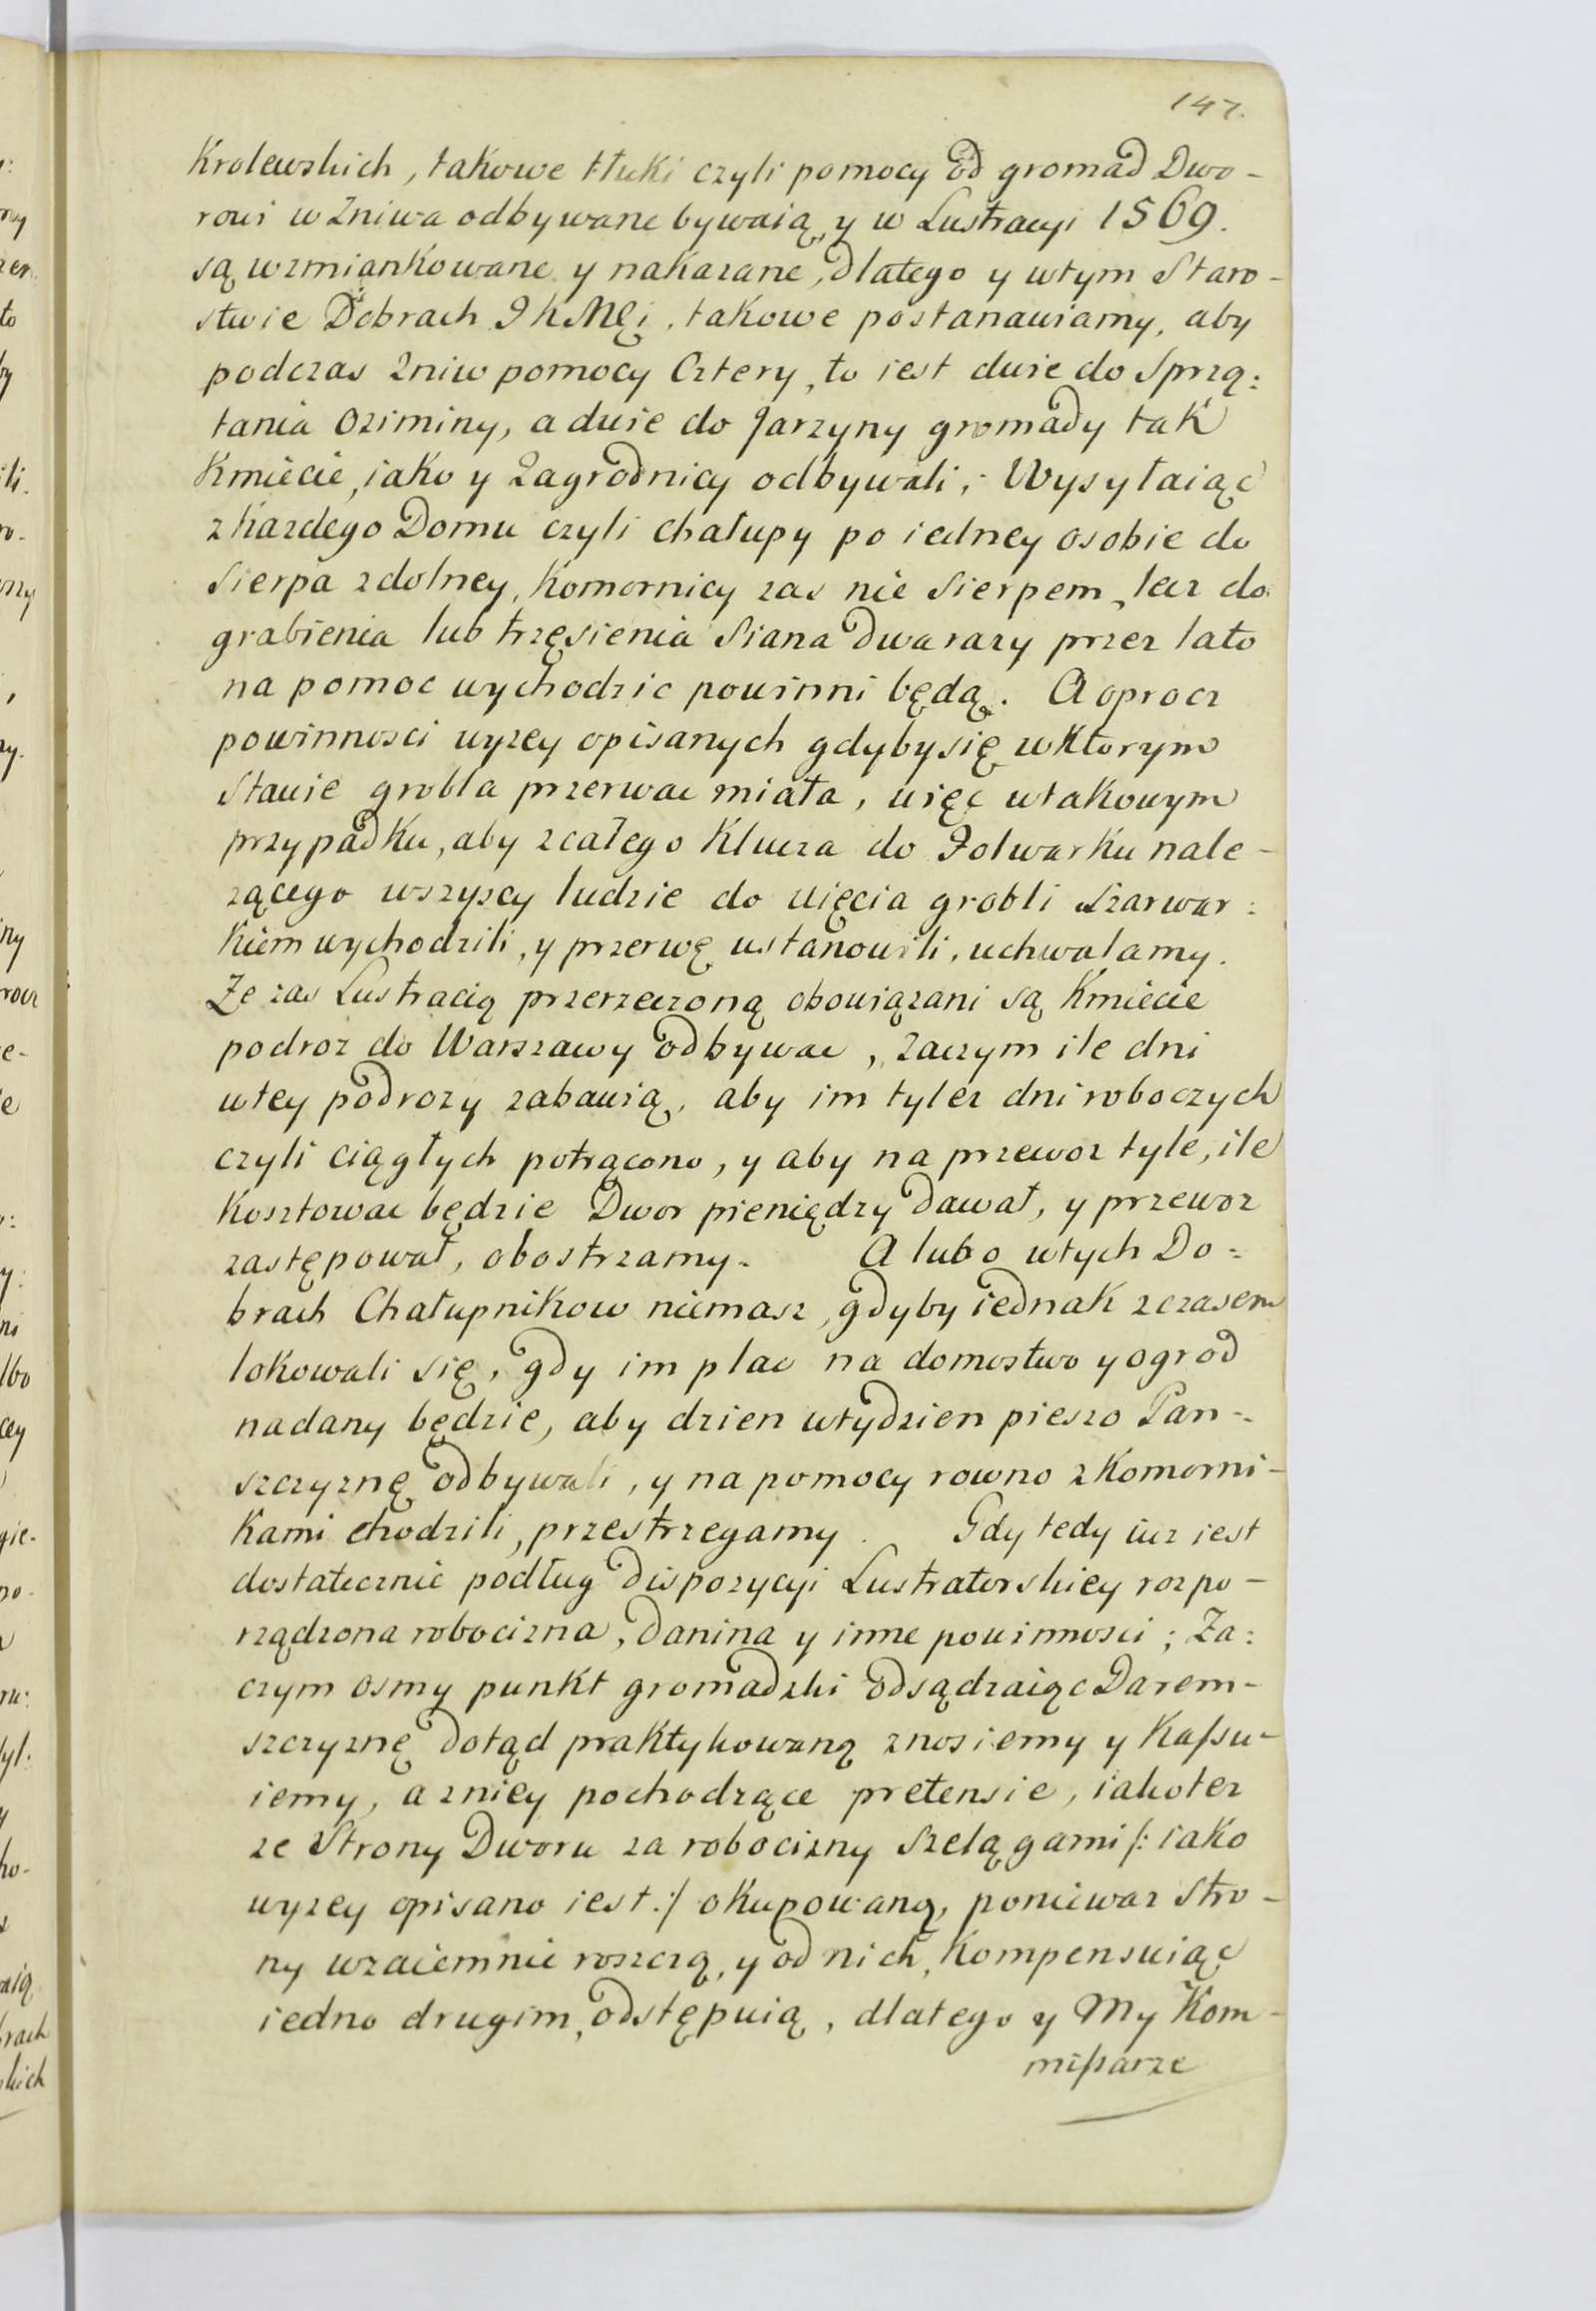 147.
Krolewskich, takowe tłuki czyli pomocy od gromad Dwo-
rowi w Zniwa odbywane bywaią, y w Lustracyi 1569.
są wzmiankowane y nakazane, dlatego y wtym Staro-
stwie Dobrach JKMCi, takowe postanawiamy, aby
podczas Zniw pomocy Cztery, to iest dwie do Sprzą:
tania Oziminy, a dwie do Jarzyny gromady tak
Kmiecie, iako y Zagrodnicy odbywali; Wysyłaiąc
z Kazdego Domu czyli chałupy po iedney osobie do
Sierpa zdolney, Komornicy zas nie Sierpem, lecz do
grabienia lub trzęsienia Siana Dwa razy przez lato
na pomoc wychodzic powinni będą. A oprocz
powinnosci wyzey opisanych gdyby się w Ktorym
Stawie grobla przerwac miała, więc wtakowym
przypadku, aby zcałego Klucza do Folwarku nale-
zącego wszyscy ludzie do uięcia grobli Szarwar:
kiem wychodzili, y przerwę ustanowili, uchwalamy.
Ze zas Lustracią przerzeczoną obowiązani są Kmiecie
podroz do Warszawy odbywac, Zaczym ile dni
wtey podrozy zabawią, aby im tylez dni roboczych
czyli ciągłych potrącono, y aby na przewoz tyle, ile
Kosztowac będzie Dwor pieniędzy dawał, y przewoz
zastępował, obostrzamy. A lubo wtych Do:
brach Chałupnikow niemasz, gdyby iednak zczasem
lokowali się, gdy im plac na domostwo y ogrod
nadany będzie, aby dzien wtydzien pieszo Pan-
szczyznę odbywali, y na pomocy rowno z Komorni-
kami chodzili, przestrzegamy. Gdy tedy iuz iest
dostatecznie podług dispozycyi Lustratorskiey rozpo-
rządzona robocizna, Danina y inne powinnosci; Za:
czym osmy punkt gromadzki odsądzaiąc Darem-
szczyznę dotąd praktykowaną znosiemy y Kaſsu-
iemy, a zniey pochodzące pretensie, iakotez
ze Strony Dworu za robocizny Szelągami /: iako
wyzey opisano iest :/ okupowaną, poniewaz Stro-
ny wzaiemnie roszczą, y od nich, Kompensuiąc
iedno drugim, odstępuią, dlatego y My Kom-
miſsarze